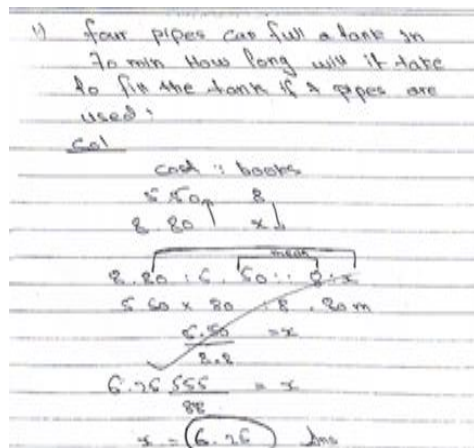 1) four pipes can full a tank in
70 min How long will it take
to fill the tank if 7 pipes are
used :
Sol
cost : books
5.50 8
8.80 x
mean
8.80 : 5.50 :: 8 : x
5.50 x 80 : 8.80 m
= x
8.8
= x
88
x = 6.25 Ans